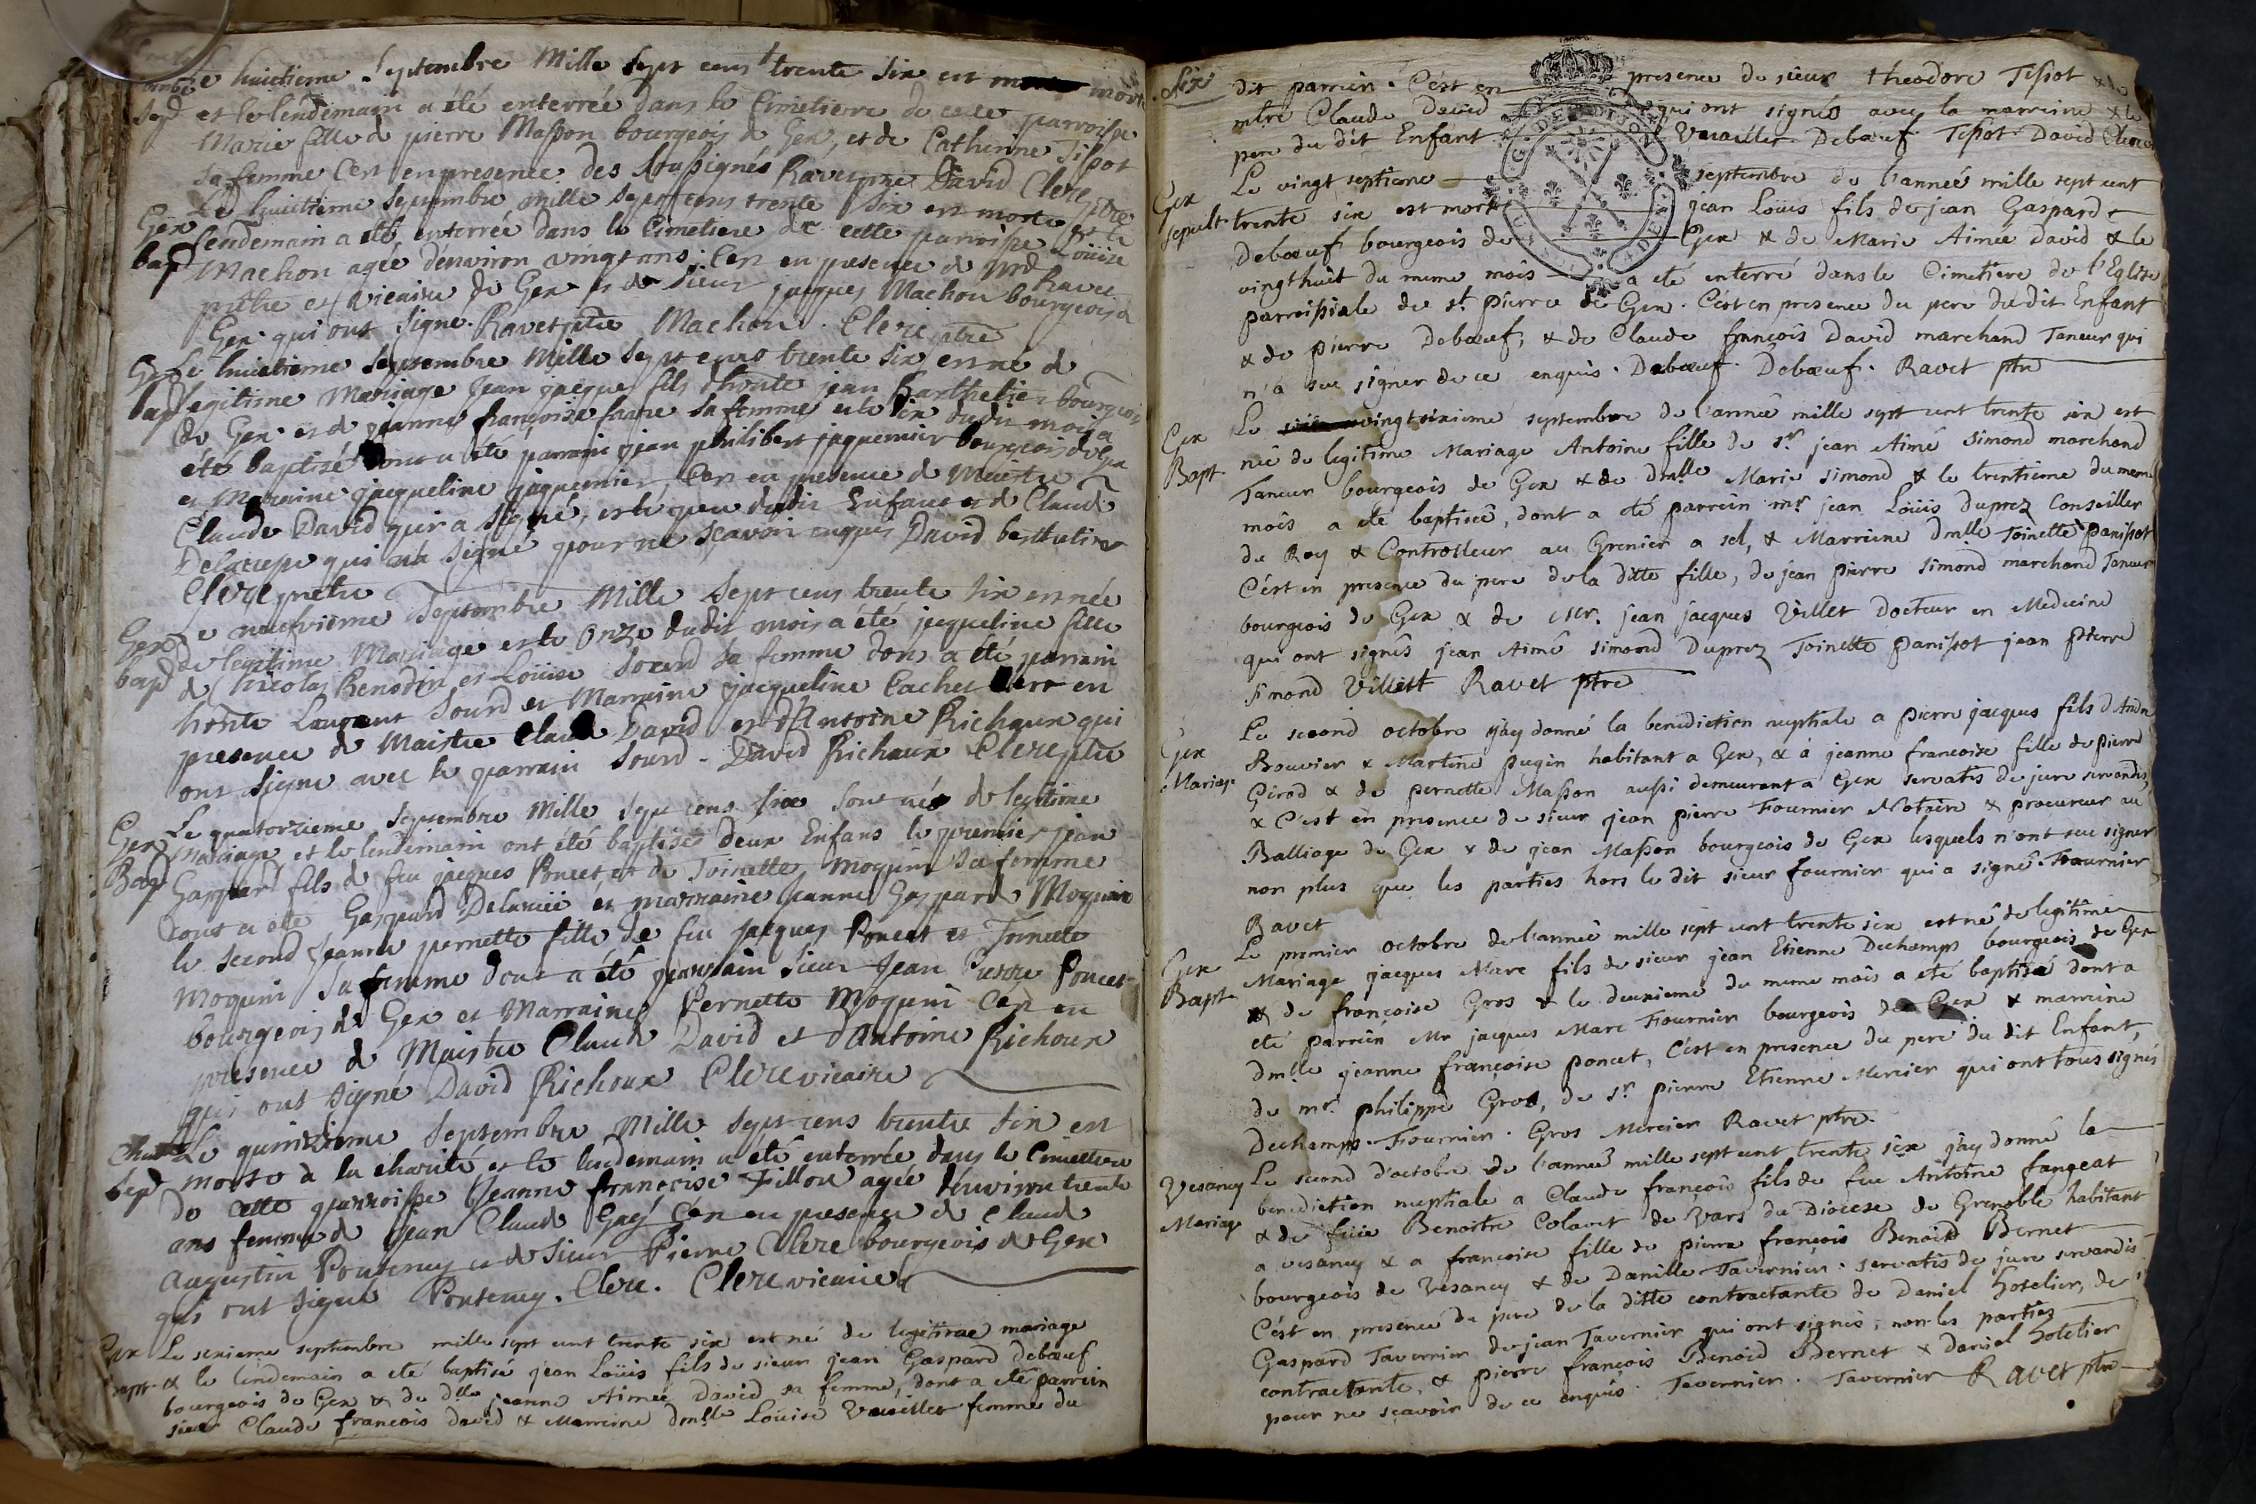 huictieme Septembre Mille Sept cens trente Six est morte
Sep et le lendemain a été enterrée dans le Cimetierre de cette parroisse
Marie fille de pierre Masson bourgeois de Gex, et de Catherine Tisot
sa femme C'est en presence des soussignés Ravet ptre David Clerc ptre
Le huictieme Septembre mille Sept cens trente Six est morte et le
Gex lendemain a été enterrée dans le Cimetiere de cette parroisse Loüise
bap Machon agée d'environ vingt ans. C'est en presence de Mrd Ravet
prêtre et vicaire de Gex et de Sieur jacques Machon bourgeois de
Gex qui ont Signe. Ravet ptre Machon. Clerc ptre
Gex Le huictieme Septembre Mille Sept cens trente Six est né de
bap legitime Mariage Jean jacques fils d'honte jean Barthelier bourgeois
de Gex et de jeanne françoise favre sa femme et le Dix dudit mois a
été baptisé dont a été parrain jean philibert jaquemier bourgeois de Gex
et Maraine jacqueline jaquemier, C'est en presence de Maistre
Claude David qui a Signé, et le pere dudit Enfant et de Claude
qui na Signé pour ne Sçavoir enquis David berthelier
Clerc prêtre
Gex Le neufvieme Septembre Mille Sept cens trente Six est née
bap de legitime Mariage et le Onze dudit mois a été jacqueline fille
de Nicolas Renodin et Loüise Sourd Sa femme dont a été parrain
honte Laurent Sourd et Marraine jacqueline Cachet C'est en
presence de Maistre Claude David et d'Antoine Richoux qui
ont signe avec le parrain Sourd. David Richoux Clerc ptre
Gex Le quatorzieme Septembre Mille Sept cens Six Sont nés de legitime
Bap Mariage et le lendemain ont été baptisés deux Enfans le premier jean
Gaspard fils de feu jacques Poncet et de Toinette Moquin Sa femme
dont a été Gaspard Delarüe et marraine Jeanne Gaspard Moquin
le Second Jeanne pernette fille de feu Jacques Poncet et Toinette
Moquin Sa femme dont a été parrain Sieur Jean Pierre Poncet
bourgeois de Gex et Marraine Pernette Moquin C'est en
presence de Maistre Claude David et d'Antoine Richoux
qui ont Signe David Richoux Clerc vicaire
Le quinzieme Septembre Mille Sept cens trente Six est
Sep morte à la charité et le lendemain a été enterrée dans le Cimetiere
de cette parroisse Jeanne françoise Fillon agée d'environ trente
ans femme de Jean Claude Gay C'est en presence de Claude
Augustin Pontency et de Sieur Pierre Clerc bourgeois de Gex
qui ont signe Pontency. Clerc. Clerc vicaire
Gex Le seixieme septembre mille sept cent trente six est né de legitime mariage
Bapt. & le lendemain a eté baptisé jean Loüis fils de sieur jean Gaspard Debœuf
bourgeois de Gex & de Dlle jeanne Aimée David sa femme, dont a eté parrein
sieur Claude françois david & Marreine Dmlle Loüise Vuaillet femme du
Six dit parrein. C'est en presence de sieur theodore Tissot & de
mtre Claude David qui ont signés avec la marreine & le
pere du dit Enfant Vuaillet. Debœuf Tissot David Clerc
Gex Le vingt septieme septembre de l'année mille sept cent
Sepult. trente six est mort jean Loüis fils de jean Gaspard
Debœuf bourgeois de Gex & de Marie Aimée David & le
vingthuit du meme mois a eté enterré dans le Cimetiere de l'Eglise
parroissiale de st. Pierre de Gex. C'est en presence du pere du dit Enfant
& de pierre Debœuf, & de Claude françois David marchand Taneur qui
n'a sue signer de ce enquis. Debœuf. Debœuf. Ravet ptre
Gex Le vingt sixieme septembre de l'année mille sept cent trente six est
Bapt née de legitime Mariage Antoine fille de sr. jean Aimé Simond marchand
Taneur bourgeois de Gex & de Dmlle Marie Simond & le trentieme du meme
mois a eté baptisée, dont a eté parrein mr. jean Loüis Duprez Conseiller
du Roy & Controlleur au Grenier a sel, & Marreine Dmlle Toinette Panissot
C'est en presence du pere de la ditte fille, de jean pierre Simond marchand Taneur
bourgeois de Gex & de Mr. jean jacques Villet Docteur en Medecine
qui ont signés jean Aimé Simond Duprez Toinette panissot jean pierre
simond Villett Ravet ptre
Gex Le second octobre j'ay donné la benediction nuptiale a pierre jacques fils d'Andre
Mariage Bouvier & Martine pugin habitant a Gex, & à jeanne francoise fille de pierre
Girod & de pernette Masson aussi demeurant a Gex servatis de jure servandis,
& C'est en presence de sieur jean pierre Fournier Notaire & procureur au
Balliage de Gex & de jean Masson bourgeois de Gex lesquels n'ont sue signer
non plus que les parties hors le dit sieur fournier qui a signé. Fournier
Ravet
Gex Le premier octobre de l'année mille sept cent trente six est né de legitime
Bapt Mariage jacques Marc fils de sieur jean Etienne Dechamps bourgeois de Gex
& de françoise Gros & le deuxieme du meme mois a eté baptisé dont a
eté parrein Mr jacques Marc Fournier bourgeois de Gex & marreine
Dmlle jeanne françoise poncet, C'est en presence du pere du dit Enfant,
de mr. philippe Gros, de sr. pierre Etienne Mercier qui ont tous signés
Dechamps. Fournier. Gros Mercier Ravet ptre.
Vesancy Le second d'octobre de l'année mille sept cent trente six j'ay donné la
Mariage benediction nuptiale a Claude françois fils de feu Antoine fangeat
& de feüe Benoitte Colavet de Vars du Diocese de Grenoble habitant
a vesancy & a francoise fille de pierre françois Benoid Bernet
bourgeois de Vesancy & de Danille Tavernier. servatis de jure servandis
C'est en presence du pere de la ditte contractante de Daniel hotelier, de
Gaspard Tavernier de jean Tavernier qui ont signés; non les parties
contractante, & pierre françois Benoid Bernet & daniel hotelier
pour ne sçavoir de ce enquis. Tavernier. Tavernier Ravet ptre